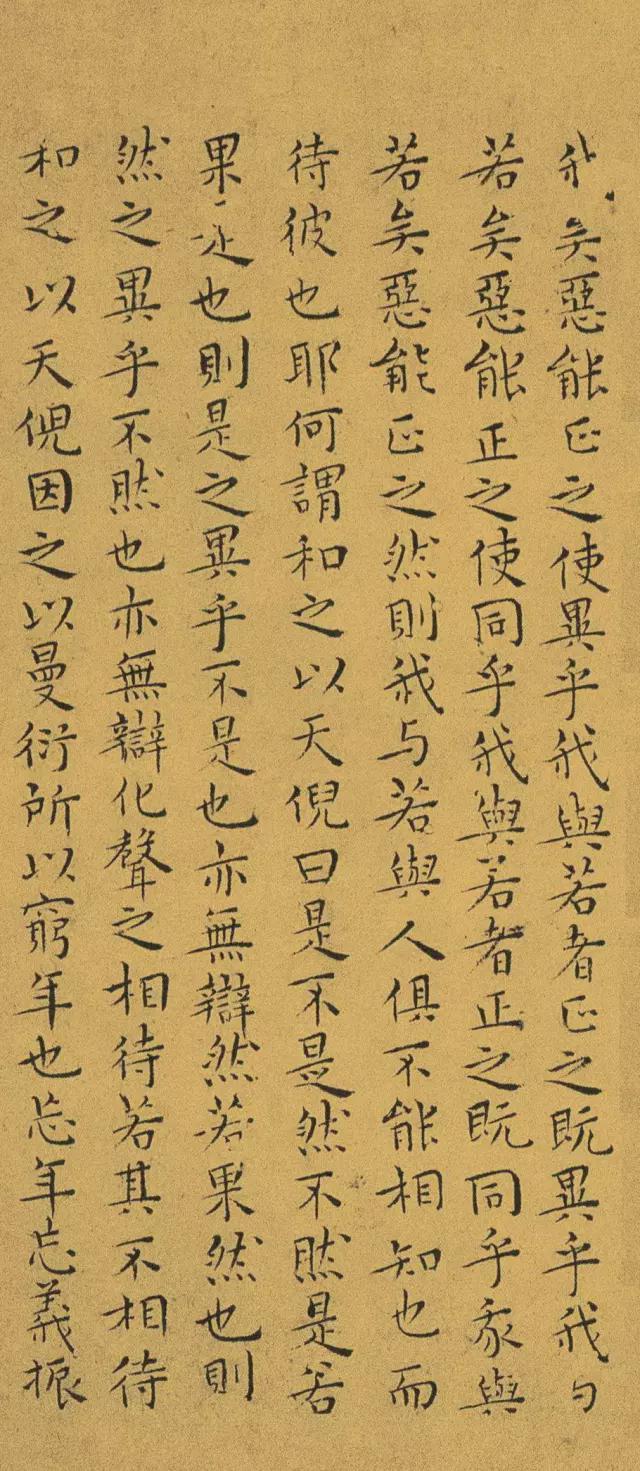 我矣惡能正之使異乎我與若者正之既異乎我与
若矣惡能正之使同乎我與若者正之既同乎我與
若矣惡能正之然則我与若與人俱不能相知也而
待彼也耶何謂和之以天倪曰是不是然不然是若
果是也則是之異乎不是也亦無辯然若果然也則
然之異乎不然也亦無辯化聲之相待若其不相待
和之以天倪因之以曼衍所以窮年也忘年忘義振